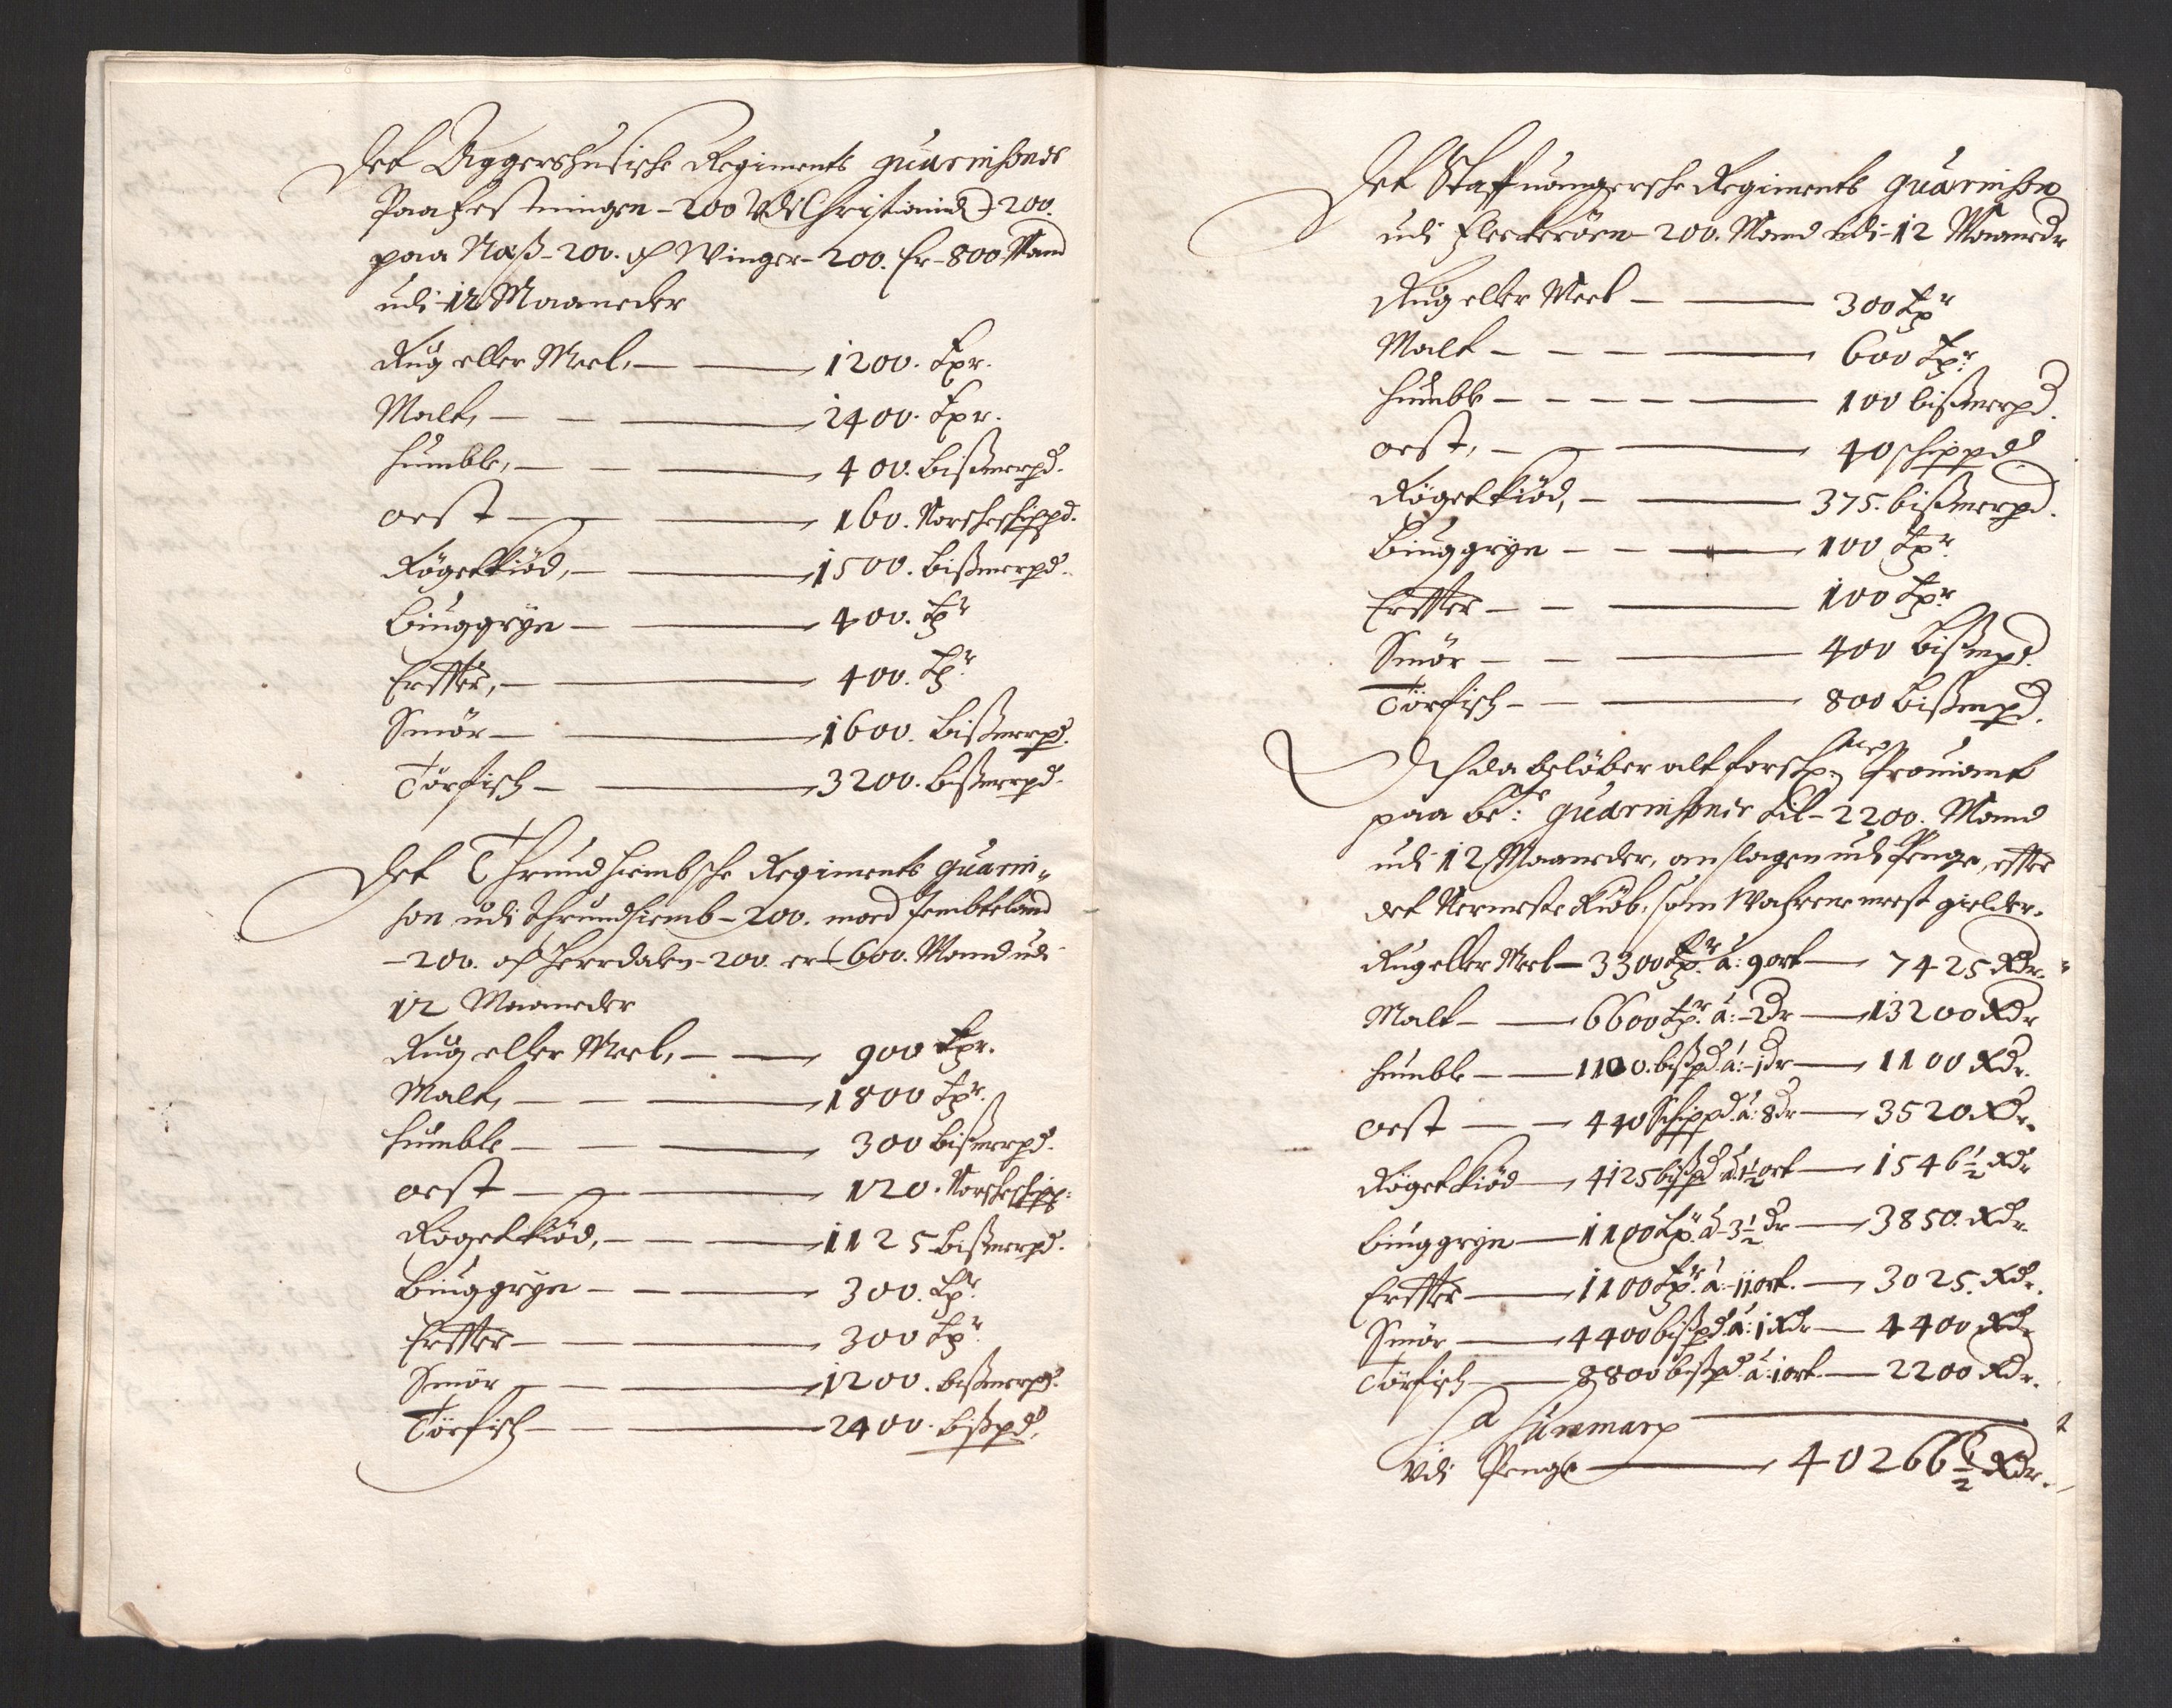 Det Aggershusische Regiments guarnisoner
Paa festningen - 200 Udi Christiania - 200.
paa Næss - 200. og Winger - 200. Er - 800 Mand
udi 12 Maaneder
Rug eller Meel, — 1200. Tpr.
Malt, — 2400. Tpr.
Humble, — 400. Bißmerpd.
Oest — 160. Norskeschippd.
Röget Kiöd, — 1500. Bißmerpd.
Biuggryn — 400. Tpr
Ertter, — 400. Tpr
Smör — 1600. Bißmerpd.
Törfisch — 3200. Bißmerpd.
Det Thrundhiembsche Regiments guarni-
son udi Thrundhiemb - 200. med Jembteland
- 200. og Herrdalen - 200. er - 600. Mand udi
12 Maaneder
Rug eller Meel, — 900 Tpr.
Malt, — 1800 Tpr.
Humble — 300 Bißmerpd.
Oest — 120. Norskeschipp:
Röget Kiöd, — 1125 Bißmerpd.
Biuggryn — 300. Tpr.
Ertter — 300 Tpr
Smör — 1200. Bißmerpd.
Törfisch — 2400. Bißpd.
Det Staffuangersche Regiments guarnison
udi Fleckeröen 200. Mand udi 12 Maaneder
Rug eller Meel — 300 Tpr
Malt — 600 Tpr.
Humble — 100 bißmerpd.
Oest, — 40 schippd
Röget Kiöd, — 375. bißmerpd.
Biuggryn — 100 Tpr.
Ertter — 100 Tpr
Smör — 400 Bißmpd.
Törfisch — 800 Bißmpd.
Och da belöber alt forschr. Prouiant
paa be:te guarnisoner til - 2200. Mand
udi 12 Maaneder, anslagen udi Penge, efter
det Nermeste Kiöb, som Wahrene mest gielder.
Rug eller Meel — 3300 Tpr. à: 9 ort — 7425 Rdr.
Malt — 6600 Tpr. à: - 2 dr — 13200 Rdr
Humble — 1100. bißpd. à: - 1 dr — 1100 Rdr.
Oest — 440 Schippd. à: 8 dr — 3520 Rdr.
Röget Kiöd — 4125 bißpd à 1½ ort — 1546½ Rdr
Biuggryn — 1100 Tpr. à - 3½ dr — 3850. Rdr.
Ertter — 1100 Tpr. à: - 11 ort. — 3025. Rdr.
Smör — 4400 bißpd. à: 1 Rdr — 4400 Rdr
Törfisch — 8800 bißpd. à: 1 ort — 2200 Rdr.
Summarum
Udi Penge — 40266½ Rdr.